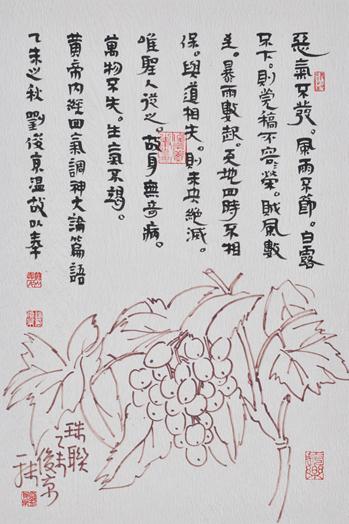 惡氣不發。風雨不節。白露
不下。則菀稿不榮。賊風數
至。暴雨數起。天地四時不相
保。與道相失。則未央絕滅。
唯聖人從之。故身無奇病。
萬物不失。生氣不竭。
黃帝內經四氣調神大論篇語
乙未之秋 劉俊京溫故以奉
珠聯
乙未
俊京
一抹